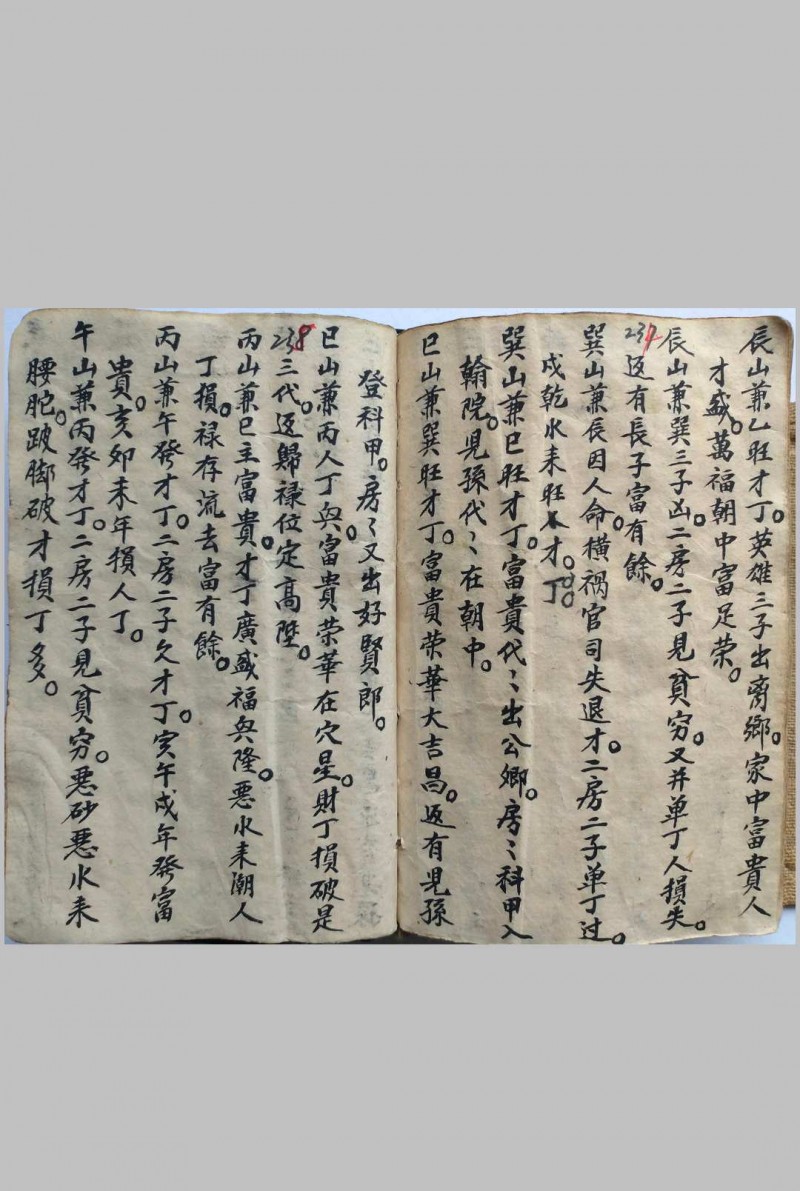 辰山兼乙旺才丁。英雄三子出离鄉。家中富貴人
才盛。萬福朝中富足荣。
辰山兼巽三子凶。二房二子見貧穷。又并单丁人損失。
237
返有長子富有餘。
巽山兼辰因人命。横禍官司失退才。二房二子单丁过。
戍乾水耒旺才。丁。
巽山兼巳旺才丁。富貴代〻出公卿。房〻科甲入
翰院。児孫代〻在朝中。
巳山兼巽旺才丁。富貴荣華大吉昌。返有児孫
登科甲。房〻又出好賢郎。
巳山兼丙人丁興。富貴荣華在穴星。財丁損破是
238
三代。返歸禄位定高陞。
丙山兼巳主富貴。才丁廣盛福興隆。悪水耒潮人
丁損。禄存流去富有餘。
丙山兼午發才丁。二房二子欠才丁。寅午戍年發富
貴。亥卯未年損人丁。
午山兼丙發才丁。二房二子見貧穷。悪砂悪水耒
腰駝。跛脚破才損丁多。